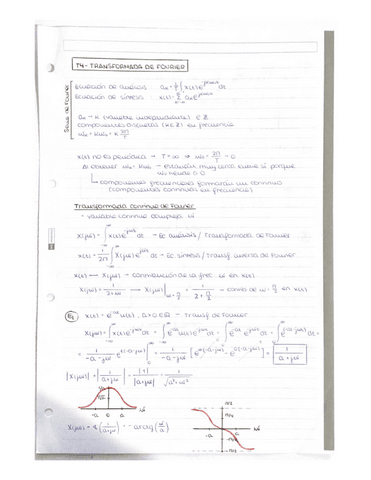 T4 - TRANSFORMADA DE FOURIER
Serie de Fourier
Ecuación de análisis : aₖ = 1/T ∫ x(t) e^-jkω₀t dt
Ecuación de síntesis : x(t) = Σ aₖ e^jkω₀t
aₖ → k (variable independiente) ∈ Z
componentes discretas (k∈Z) en frecuencia
ωₖ = kω₀ = k 2π/T
x(t) no es periódica → T = ∞ → ω₀ = 2π/T = 0
componentes frecuenciales formarán un continuo
(componentes continuas en frecuencia)
Transformada Continua de Fourier
- variable continua compleja
X(jω) = ∫ x(t) e^-jωt dt → Ec análisis / Transformada de Fourier
x(t) = 1/2π ∫ X(jω) e^jωt → Ec síntesis / Transf inversa de Fourier
x(t) ⟷ X(jω) - contribución de la frec ω en x(t)
X(jω) = 1/(2+jω) → X(jω)|
Ej x(t) = e^-at u(t), a>0 ∈ R → Transf de Fourier
X(jω) = ∫ x(t) e^-jωt dt = ∫ e^-at u(t) e^-jωt dt = ∫ e^-at e^-jωt dt = ∫ e^(-a-jω)t dt =
= 1/(-a-jω) e^(-a-jω)t = 1/(-a-jω) [e^(-a-jω)∞ - e^(-a-jω)0] = 1/(a+jω)
|X(jω)| = |1/(a+jω)| = |1|/|a+jω| = 1/√(a²+ω²)
-a 0 a ω
X(jω) = ∢(1/(a+jω)) = -arctg(ω/a)
π/2
π/4
-π/4
-π/2